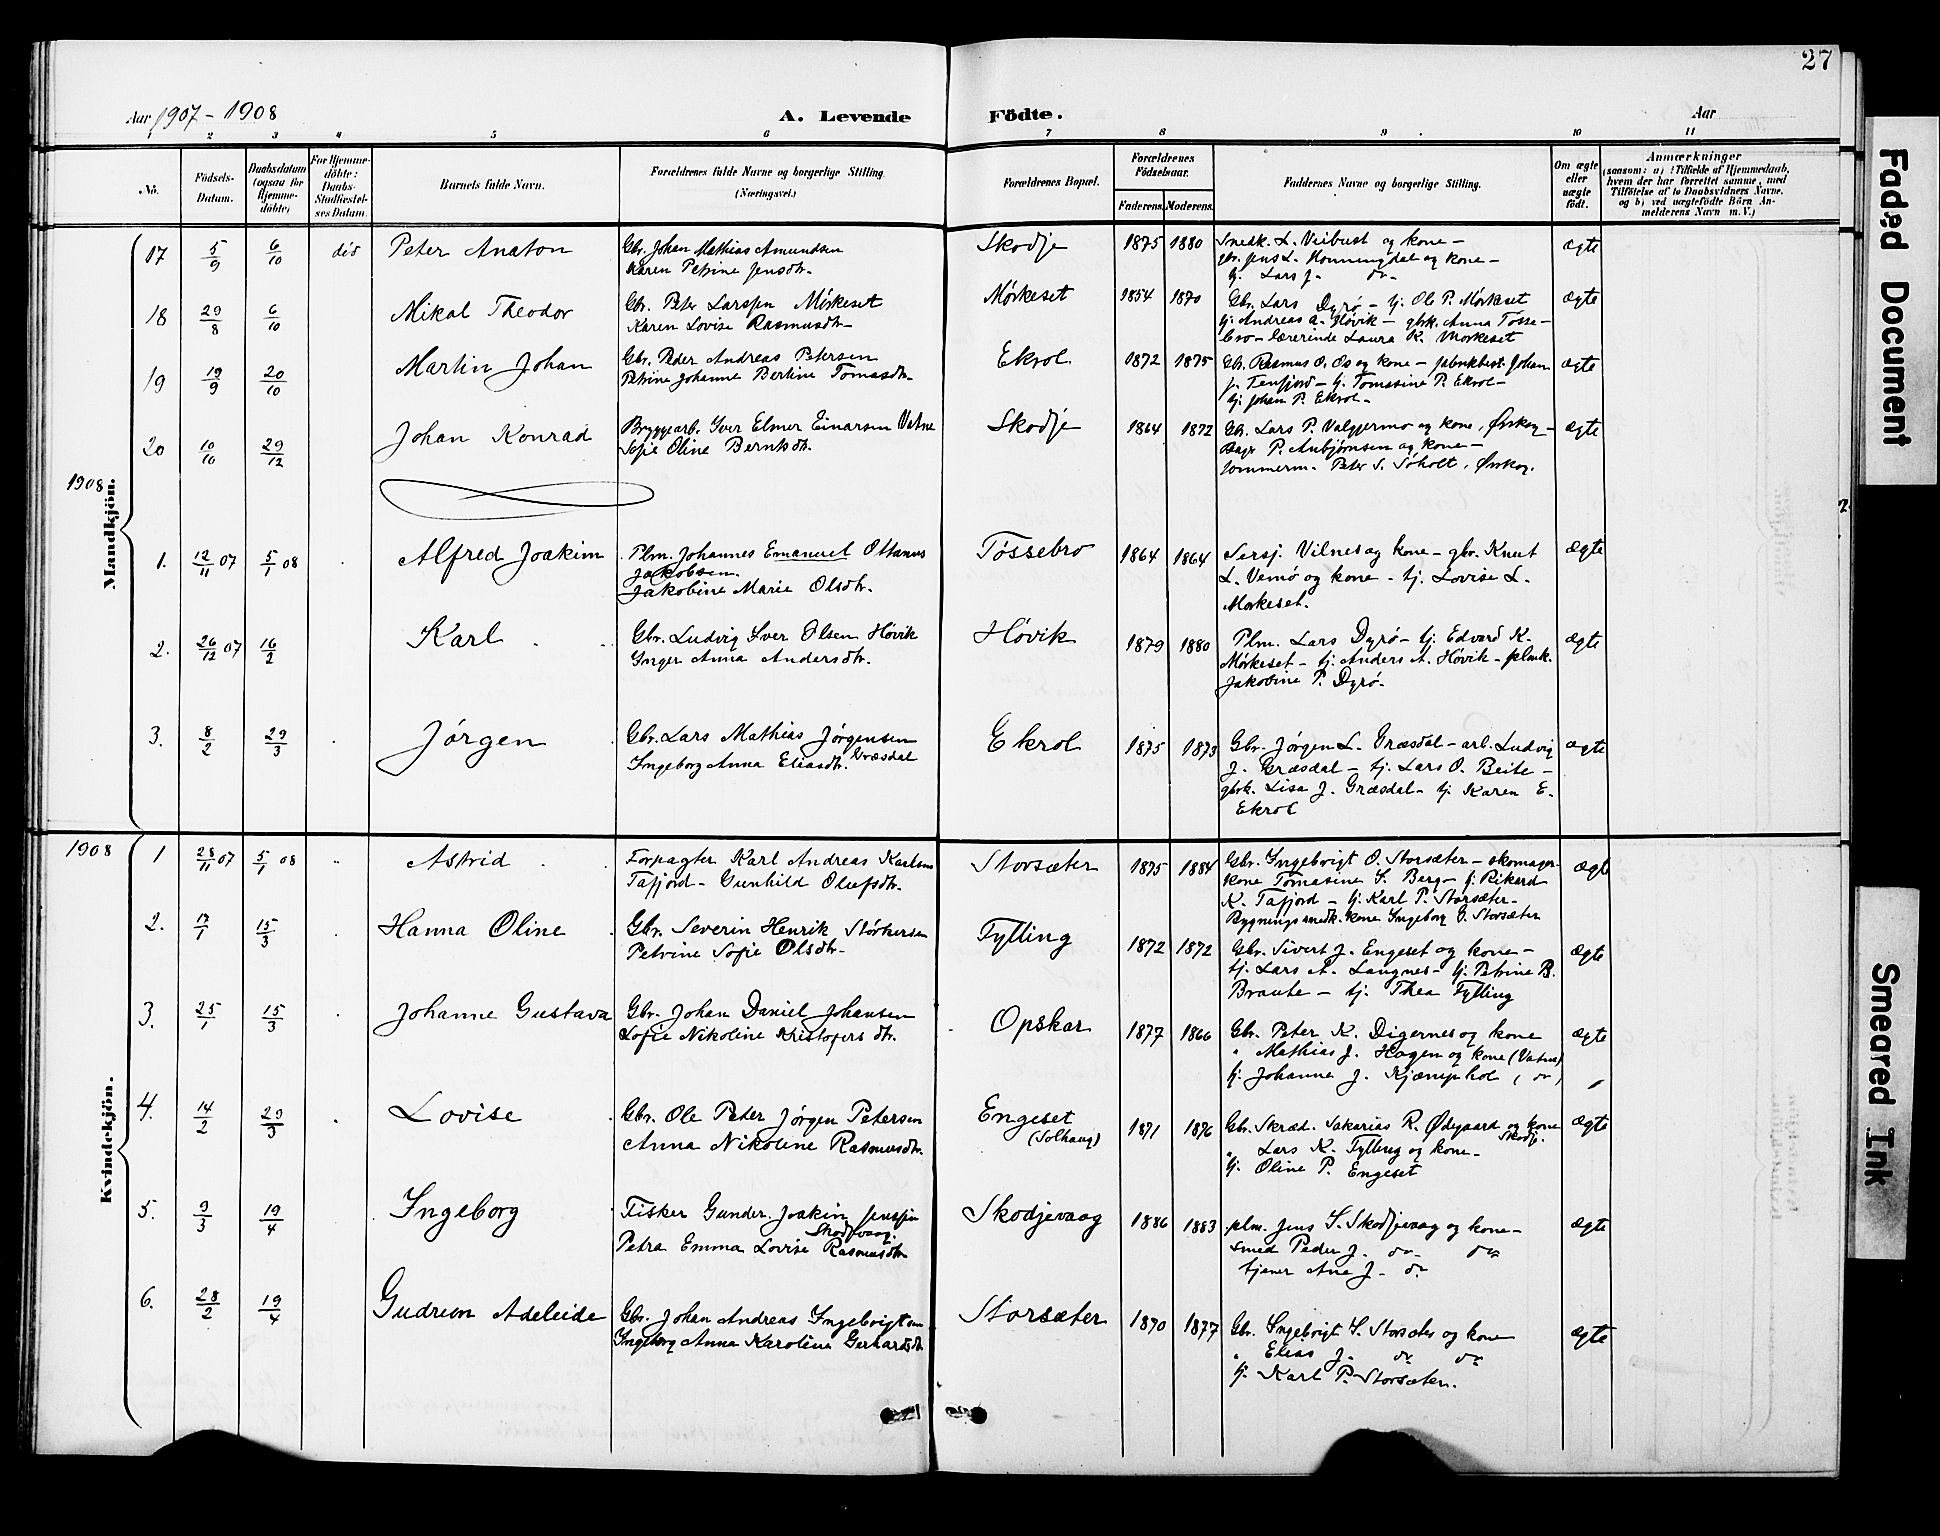 27
Aar 1907 - 1908
A. Levende Födte.
Aar
1 2 3 4 5 6 7 8 9 10 11
No.
Födsels-Datum.
Daabsdatum (ogsaa for Hjemme-döbte)
For Hjemme-döbte: Daabs-Stadfæstel-ses Datum.
Barnets fulde Navn.
Forældrenes fulde Navne og borgerlige Stilling. (Næringsvei.)
Forældrenes Bopæl.
Forældrenes Födselsaar.
Faderens. Moderens.
Faddernes Navne og borgerlige Stilling.
Om ægte eller uægte födt.
Anmærkninger
(saasom: a) i Tilfælde af Hjemmedaab, hvem der har forrettet samme, med Tilföielse af to Daabsvidners Navne, og b) ved uægtefödte Börn An-melderens Navn m. V.)
Mandkjön.
17 5/9 6/10 Peter Anaton Gbr. Johan Mathias Amundsen Skodje 1875 1880 Snedk. L. Veibust og kone - ægte
Karen Petrine Jensdtr. gbr. Jens L. Honningdal og kone -
tj. Lars J. do -
18 29/8 6/10 Mikal Theodor Gbr. Peter Larssen Mørkeset Mørkeset 1854 1870 Gbr. Lars Dyrø - tj. Ole P. Mørkeset ægte
Karen Lovise Rasmusdtr. tj. Andreas A. Høvik - gbrk. Anna Tøsse-
bro - lærerinde Laura K. Mørkeset
19 19/9 20/10 Martin Johan Gbr. Peder Andreas Petersen Ekrol. 1872 1875 Gbr. Rasmus O. Os og kone - fabrikbest. Johan ægte
Petrine Johanne Bertine Tomasdtr. J. Tenfjord - tj. Tomasine P. Ekrol -
tj. Johan P. Ekrol -
20 10/10 29/12 Johan Konrad Bryggearb. Iver Elmer Einarsen Vatne Skodje 1864 1872 Gbr. Lars P. Valgermo og kone, Ørskog - ægte
Sofie Oline Berntsdtr. P. Anbjørnsen og kone -
tømmerm. Peter S. Søholt, Ørskog.
1908
1. 12/11 07 5/1 08 Alfred Joakim Plm. Johannes Emanuel Ottanus Tøssebro 1864 1864 Sersj. Vilnes og kone - gbr. Knut ægte
Jakobsen. L. Vemø og kone - tj. Lovise L.
Jakobine Marie Olsdtr. Mørkeset.
2. 26/12 07 16/2 Karl Gbr. Ludvig Iver Olsen Høvik Høvik 1879 1880 Plm. Lars Dyrø - tj. Edvard K. ægte
Inger Anna Andersdtr. Mørkeset - tj. Anders A. Høvik - plmk.
Jakobine P. Dyrø -
3. 8/2 29/3 Jørgen Gbr. Lars Mathias Jørgensen Ekrol 1875 1873 Gbr. Jørgen L. Græsdal - arb. Ludvig ægte
Græsdal J. Græsdal - tj. Lars O. Beite -
Ingeborg Anna Eliasdtr. gbrk. Lisa J. Græsdal - tj. Karen E.
Ekrol
1908
Kvindekjön.
1 28/11 07 5/1 08 Astrid Forpagter Karl Andreas Karlsen Storsæter 1875 1884 Gbr. Ingebrigt O. Storsæter - skomager- ægte
Tafjord - Gunhild Olufsdtr. kone Tomasine S. Berg - tj. Rikard
K. Tafjord - tj. Karl P. Storsæter -
Bygningssnedk. kone Ingeborg G. Storsæter
2. 17/1 15/3 Hanna Oline Gbr. Severin Henrik Størkersen Fylling 1872 1872 Gbr. Sivert J. Engeset og kone - ægte
Petrine Sofie Olsdtr. tj. Lars A. Langnes - tj. Petrine B.
Braute - tj. Thea Fylling
3. 25/1 15/3 Johanne Gustava Gbr. Johan Daniel Johansen Opskar 1877 1866 Gbr. Peter K. Digernes og kone ægte
Lofie Nikoline Kristofersdtr. " Mathias J. Hagen og kone (Vatne)
tj. Johanne J. Kjæmphol (do)
4. 14/2 29/3 Lovise Gbr. Ole Peter Jørgen Petersen Engeset 1871 1876 Gbr. Skræd. Sakarias R. Ødegaard og kone ægte
Anna Nikoline Rasmusdtr. (Solhaug) Skodje.
" Lars K. Fylling og kone -
tj. Oline P. Engeset
5. 9/3 19/4 Ingeborg Fisker Gunder Joakim Jenssen Skodjevaag 1886 1883 plm. Jens S. Skodjevaag og kone - ægte
Skodjevaag. smed Peder J. do do
Petra Emma Lovise Rasmusdtr. tjener Ane J. do
6. 28/2 19/4 Gudrun Adeleide Gbr. Johan Andreas Ingebrigtsen Storsæter 1870 1877 Gbr. Ingebrigt S. Storsæter og kone ægte
Ingeborg Anna Karoline Gerhardsdtr. " Elias J. do do
tj. Karl P. Storsæter.
Faded Document
Smeared Ink